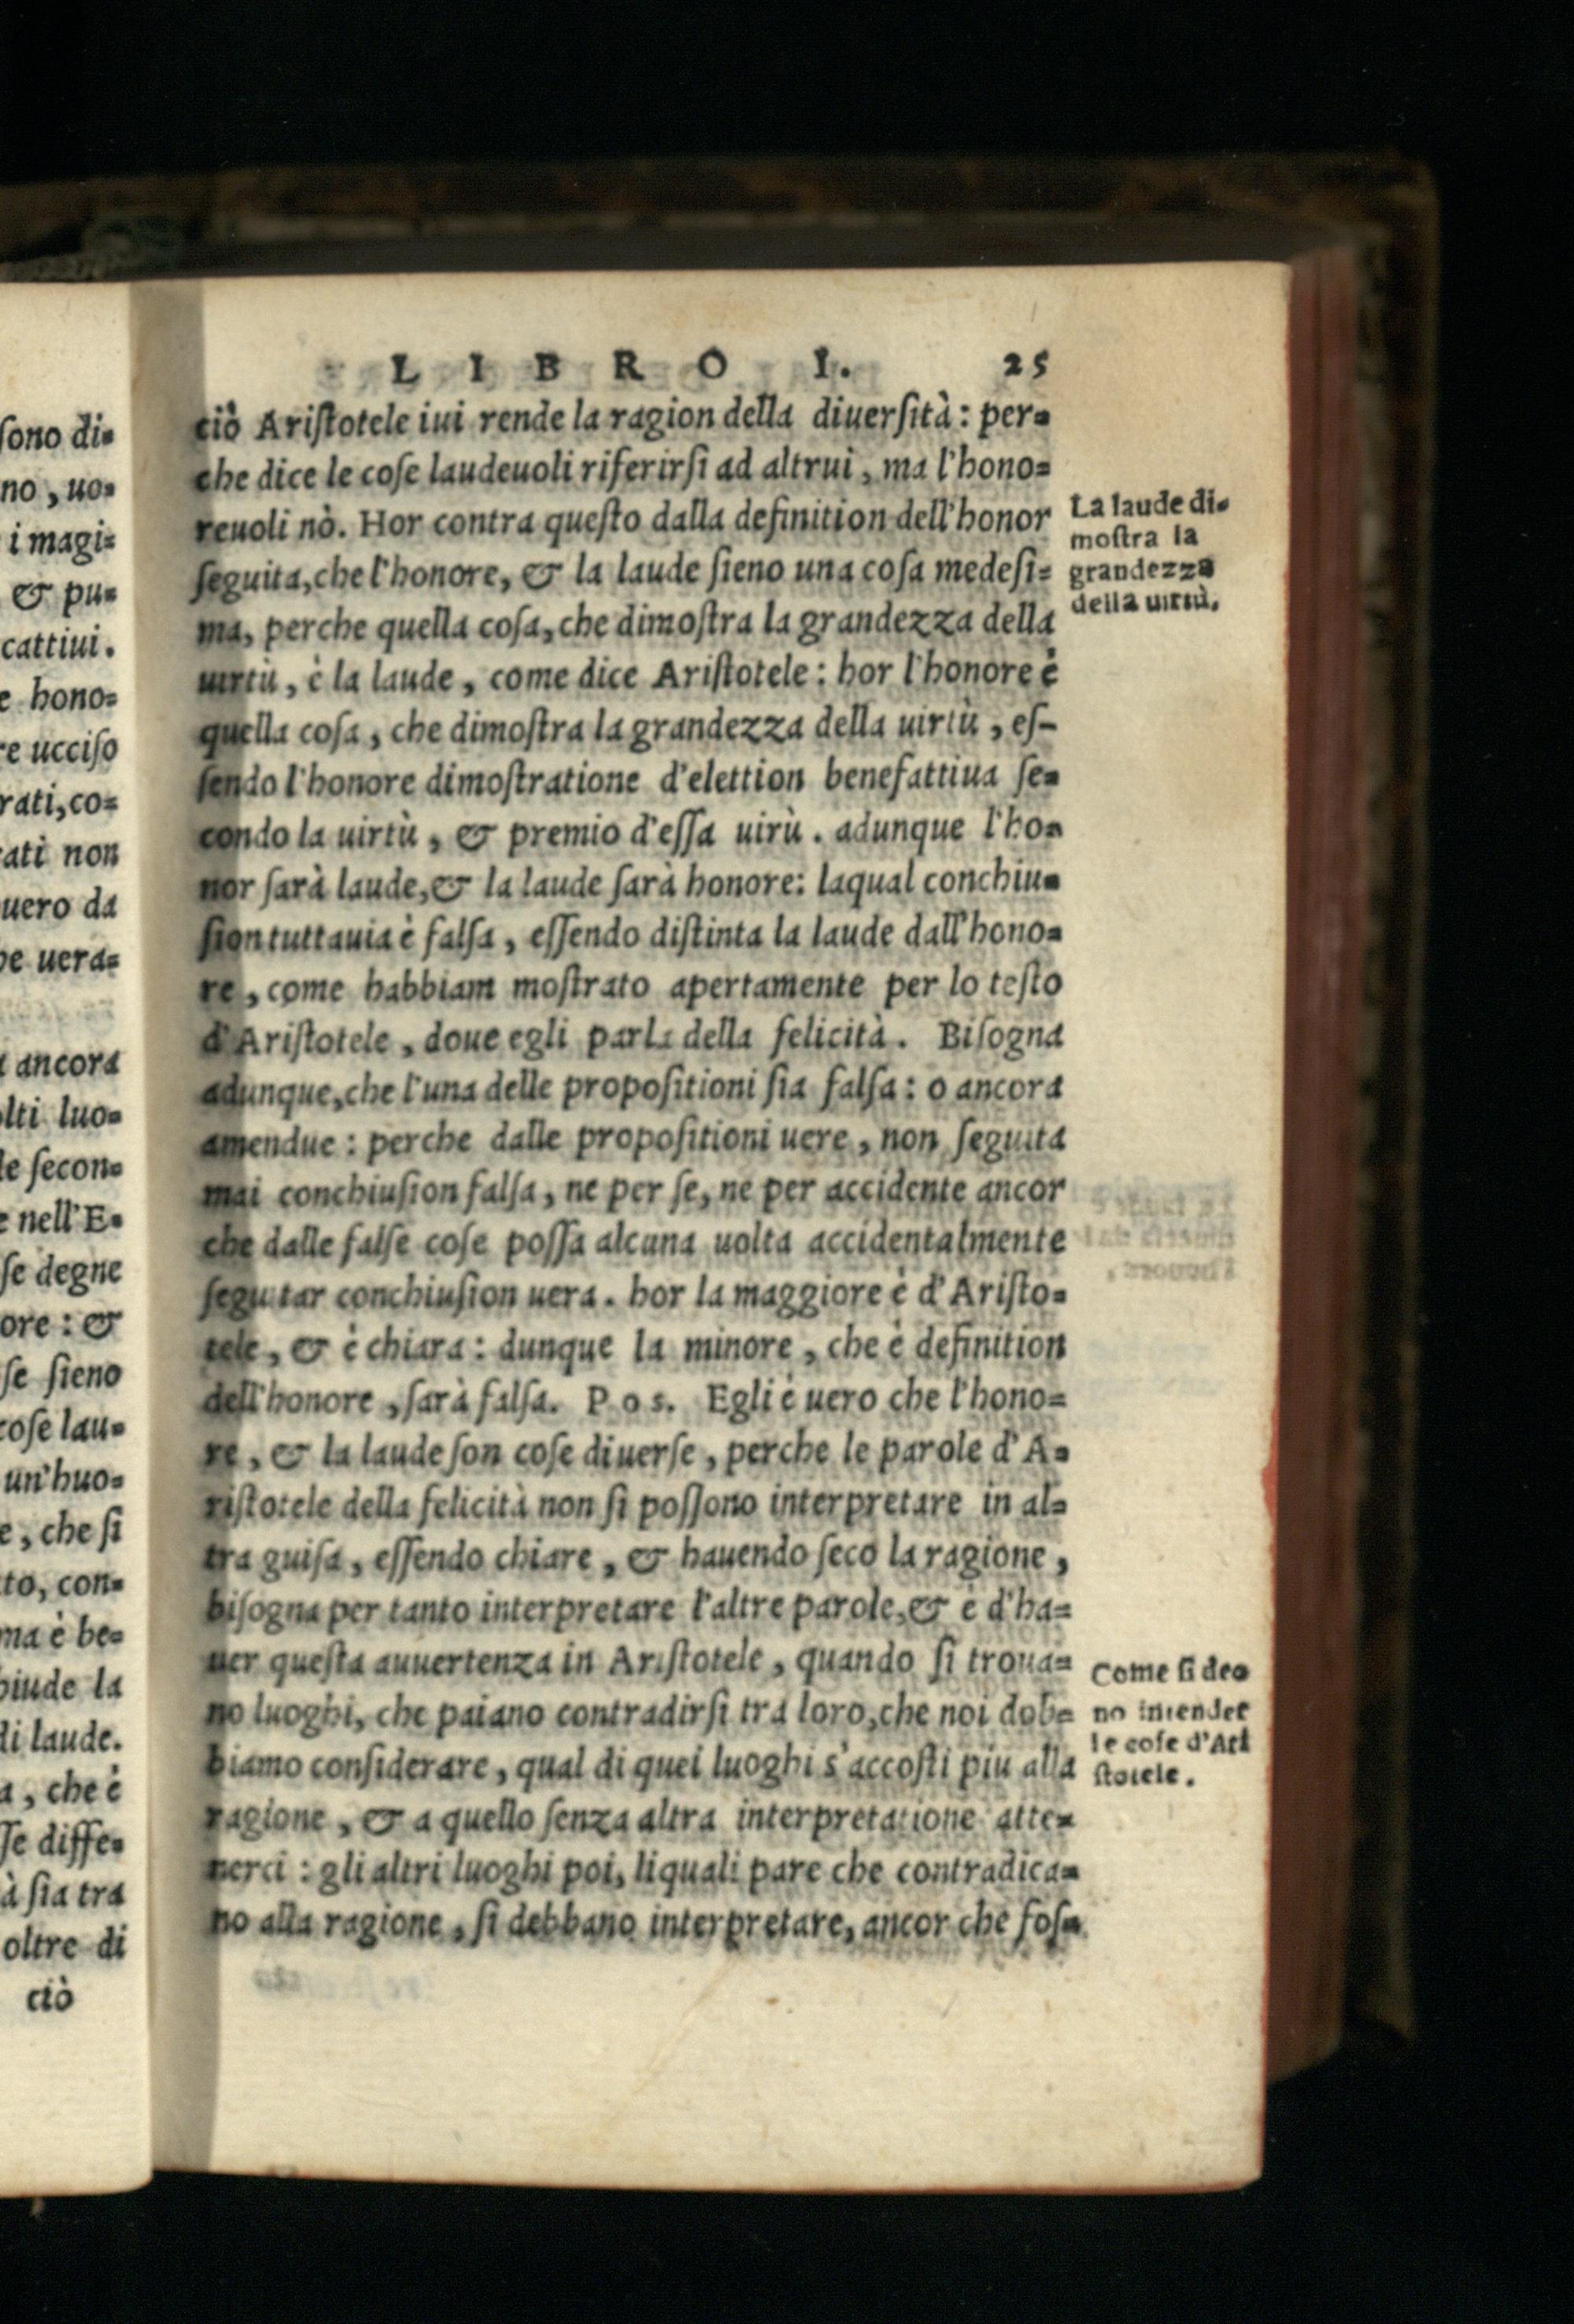 ſono di=
no, uo=
i magi=
& pu=
cattiui.
e hono=
re ucciſo
rati, co=
ati non
uero da
pe uera=
ancora
olti luo=
le ſecon=
e nell'E=
ſe degne
ore: &
ſe ſieno
coſe lau=
un'huo=
e, che ſi
to, con=
ma è be=
hiude la
di laude.
a, che è
ſſe diffe=
à ſia tra
oltre di
ciò
LIBRO I. 25
ciò Ariſtotele iui rende la ragion della diuerſità: per=
che dice le coſe laudeuoli riferirſi ad altrui, ma l'hono=
reuoli nò. Hor contra queſto dalla definition dell'honor
ſeguita, che l'honore, & la laude ſieno una coſa medeſi=
ma, perche quella coſa, che dimoſtra la grandezza della
uirtù, è la laude, come dice Ariſtotele: hor l'honore è
quella coſa, che dimoſtra la grandezza della uirtù, eſ-
ſendo l'honore dimoſtratione d'elettion benefattiua ſe=
condo la uirtù, & premio d'eſſa uirù. adunque l'ho=
nor ſarà laude, & la laude ſarà honore: laqual conchiu=
ſion tuttauia è falſa, eſſendo diſtinta la laude dall'hono=
re, come habbiam moſtrato apertamente per lo teſto
d'Ariſtotele, doue egli parla della felicità. Biſogna
adunque, che l'una delle propoſitioni ſia falſa: o ancora
amendue: perche dalle propoſitioni uere, non ſeguita
mai conchiuſion falſa, ne per ſe, ne per accidente ancor
che dalle falſe coſe poſſa alcuna uolta accidentalmente
ſeguitar conchiuſion uera. hor la maggiore è d'Ariſto=
tele, & è chiara: dunque la minore, che è definition
dell'honore, ſarà falſa. Pos. Egli è uero che l'hono=
re, & la laude ſon coſe diuerſe, perche le parole d'A=
riſtotele della felicità non ſi poſſono interpretare in al=
tra guiſa, eſſendo chiare, & hauendo ſeco la ragione,
biſogna per tanto interpretare l'altre parole, & è d'ha=
uer queſta auuertenza in Ariſtotele, quando ſi troua=
no luoghi, che paiano contradirſi tra loro, che noi dob=
biamo conſiderare, qual di quei luoghi s'accoſti piu alla
ragione, & a quello ſenza altra interpretatione atte=
nerci: gli altri luoghi poi, liquali pare che contradica=
no alla ragione, ſi debbano interpretare, ancor che foſ=
La laude di=
moſtra la
grandezza
della uirtù.
Come ſi deo
no intender
le coſe d'Ari
ſtotele.